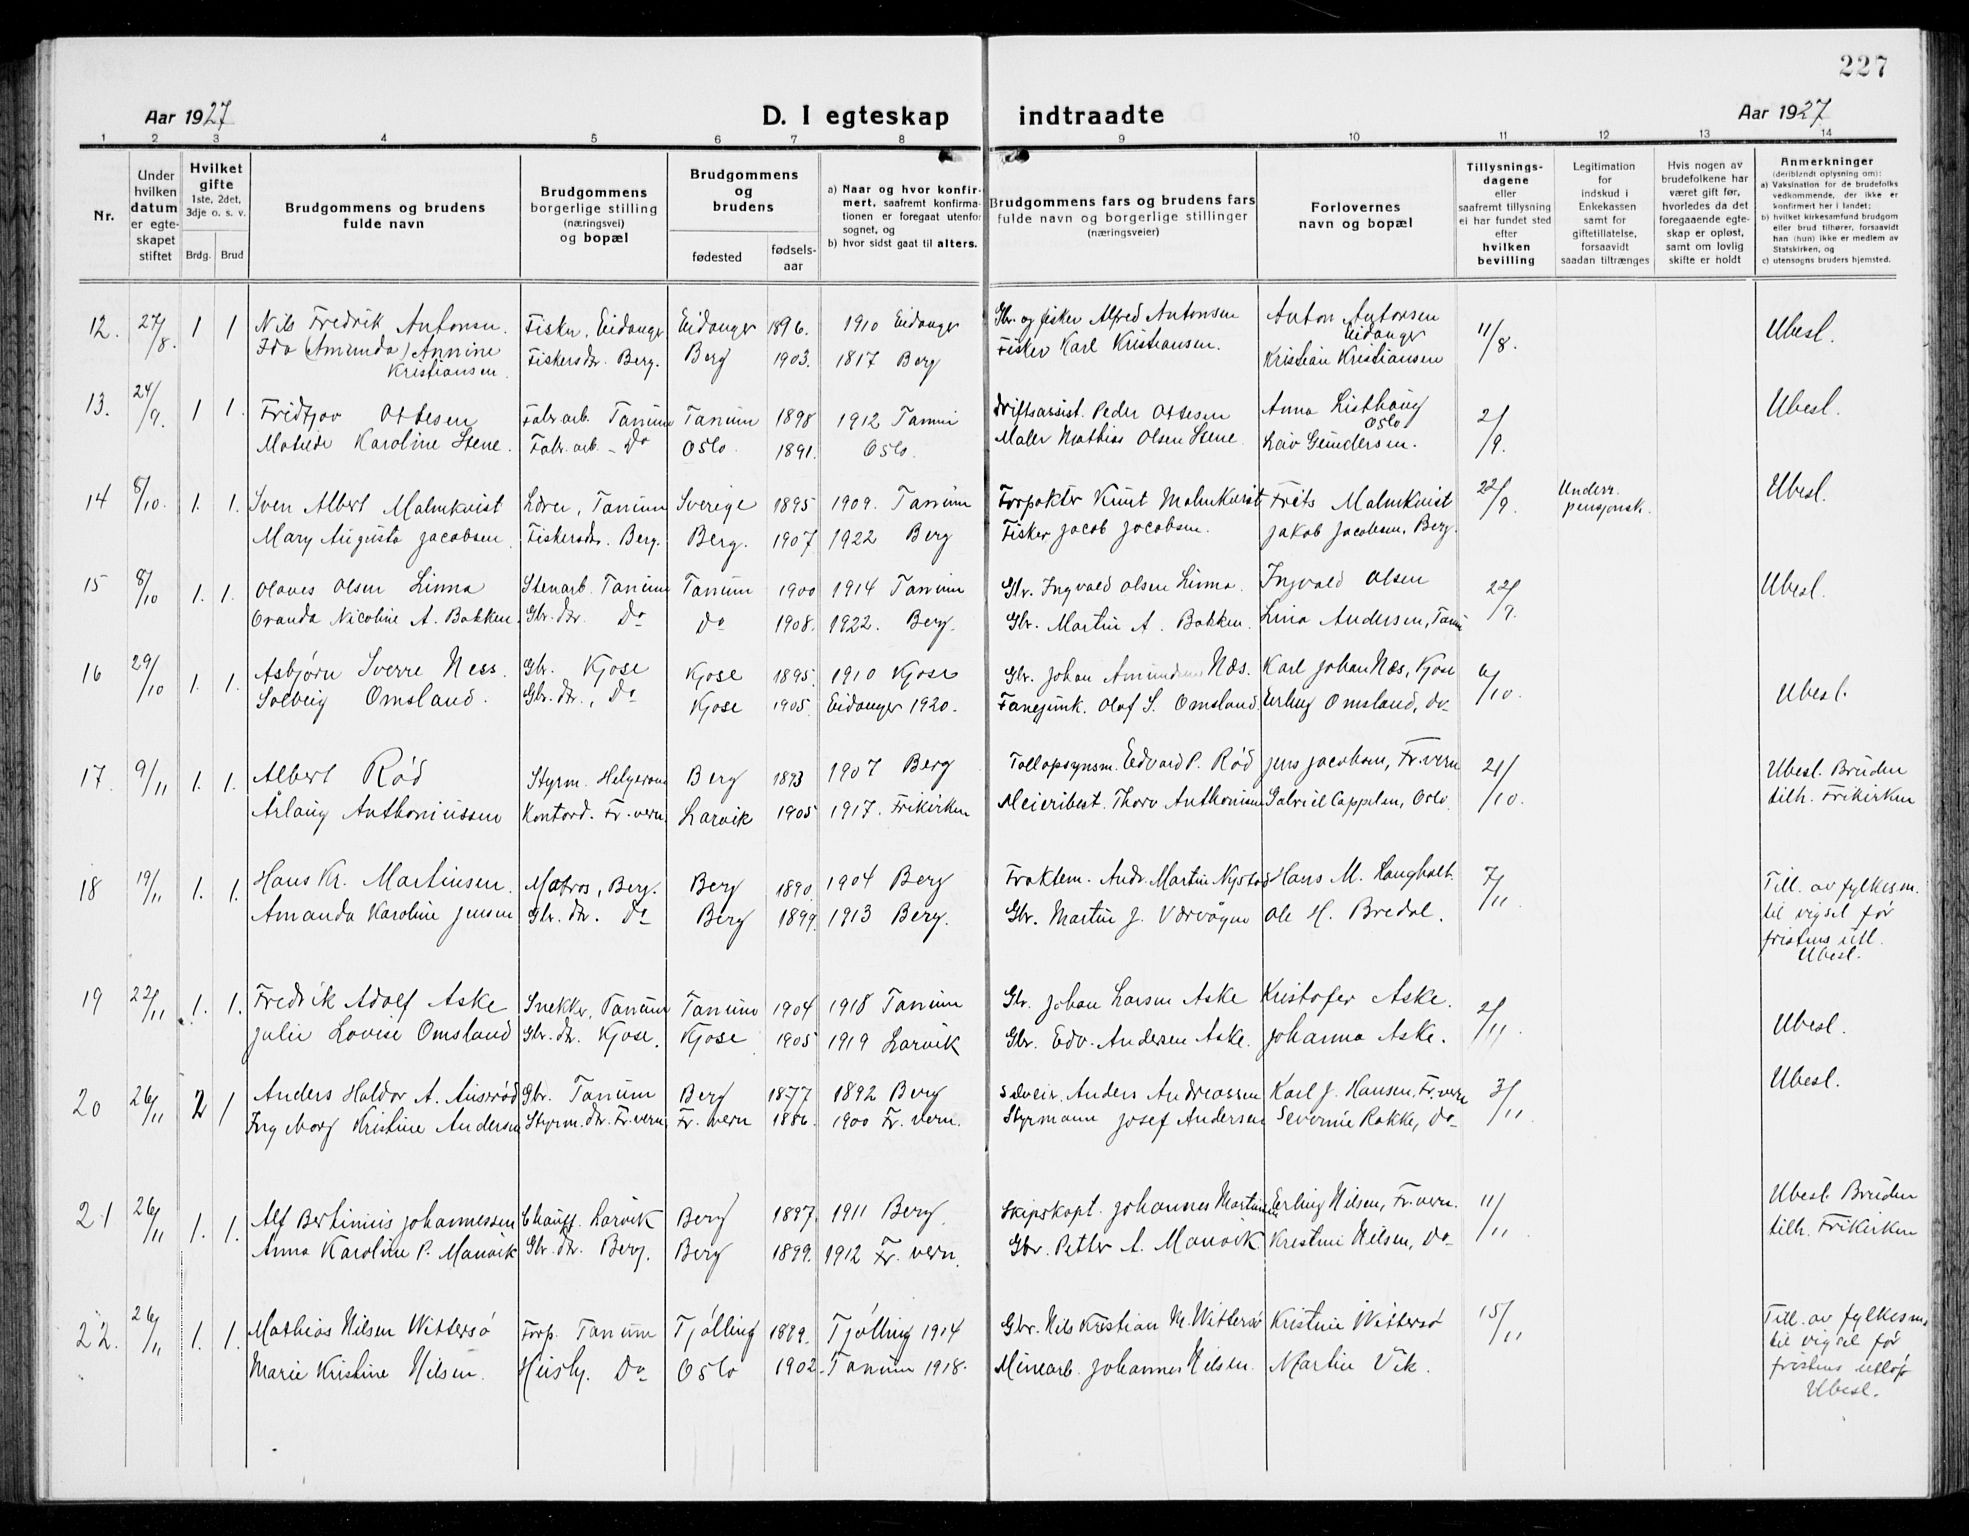 227
Aar 1927 D. I egteskap indtraadte Aar 1927
1 2 3 4 5 6 7 8 9 10 11 12 13 14
Nr.
Under hvilken datum er egteskapet stiftet
Hvilket gifte 1ste, 2det, 3dje o. s. v.
Brdg. Brud
Brudgommens og brudens fulde navn
Brudgommens borgerlige stilling (næringsvei) og bopæl
Brudgommens og brudens
fødested fødselsaar
a) Naar og hvor konfirmert, saafremt konfirmationen er foregaat utenfor sognet, og
b) hvor sidst gaat til alters.
Brudgommens fars og brudens fars fulde navn og borgerlige stillinger (næringsveier)
Forlovernes navn og bopæl
Tillysningsdagene eller saafremt tillysning ei har fundet sted efter hvilken bevilling
Legitimation for indskud i Enkekassen samt for giftetillatelse, forsaavidt saadan tiltrænges
Hvis nogen av brudefolkene har været gift før, hvorledes da det foregaaende egteskap er opløst, samt om lovlig skifte er holdt
Anmerkninger (deriblandt oplysning om):
a) Vaksination for de brudefolks vedkommende, der ikke er konfirmert her i landet;
b) hvilket kirkesamfund brudgom eller brud tilhører, forsaavidt han (hun) ikke er medlem av Statskirken, og
c) utensogns bruders hjemsted.
12. 27/8. 1 1 Nils Fredrik Antonsen. Fisker, Eidanger Eidanger 1896. 1910 Eidanger Gbr. og fisker Alfred Antonsen Anton Antonsen Eidanger 11/8. Ubesl.
Ida (Amunda) Annine Kristiansen. Fiskersdr. Berg. Berg 1903. 1817 Berg Fisker Karl Kristiansen. Kristian Kristiansen
13. 24/9. 1 1. Fridtjov Ottesen Fabr.arb. Tanum Tanum 1898 1912 Tanum Driftsassist. Peder Ottesen Anna Listhaug Oslo 2/9. Ubesl.
Matilde Karoline Stene. Fabr.arb. - Do Oslo. 1891. Oslo. Maler Mathias Olsen Stene. Leiv Gundersen.
14 8/10. 1. 1. Sven Albert Malmkvist Lærer, Tanum Sverige 1895 1909. Tanum Forpakter Knut Malmkvist Frits Malmkvist 22/9. Underv. pensjonsk. Ubesl.
Mary Augusta Jacobsen. Fiskersdr. Berg. Berg. 1907 1922 Berg Fisker Jacob Jacobsen. Jakob Jacobsen, Berg.
15 8/10 1. 1. Olaves Olsen Linna Stenarb. Tanum Tanum 1900 1914 Tanum Gbr. Ingvald Olsen Linna. Ingvald Olsen 22/9. Ubesl.
Oranda Nicoline A. Bakken. Gbr. dr. Do Do 1908. 1922. Berg. Gbr. Martin A. Bakken. Lina Andersen, Tanum
16 29/10 1. 1. Asbjørn Sverre Ness. Gbr. Kjose Kjose 1895. 1910 Kjose Gbr. Johan Amundsen Næs. Karl Johan Næs, Kjose 6/10. Ubesl.
Solveig Omsland. Gbr. dr., Do Kjose 1905. Eidanger 1920. Fanejunk. Olaf S. Omsland. Erling Omsland, do-
17. 9/11 1. 1. Albert Rød Styrm. Helgeroa Berg 1893 1907 Berg Tollopsynsm. Edvard P. Rød Jens Jacobsen, Fr.vern 21/10. Ubesl. Bruden tilh. Frikirken
Årlaug Anthoniussen Kontord. Fr.vern Larvik 1905 1917. Frikirken Meieribest. Thorv Anthonisen Gabriel Cappelen, Oslo
18 19/11 1. 1. Hans Kr. Martinsen. Matros, Berg. Berg 1890. 1904 Berg Fraktem. Andr. Martin Nystad Hans M. Langholt. 7/11. Till. av fylkesm. til vigsel før fristens utl. Ubesl.
Amanda Karoline Jensen Gbr. dr. Do Berg 1899. 1913 Berg. Gbr. Martin J. Værvågen Ole H. Bredal.
19 22/11 1. 1. Fredrik Adolf Aske Snekker, Tanum Tanum 1904 1918 Tanum Gbr. Johan Larsen Aske Kristofer Aske. 2/11. Ubesl.
Julie Lovise Omsland Gbr. dr. Kjose. Kjose 1905 1919 Larvik Gbr. Edv. Andersen Aske. Johanna Aske.
20 26/11 2 1 Anders Haldor A. Ausrød Gbr. Tanum Berg 1877 1892 Berg Selveier Anders Andreassen Karl J. Hansen, Fr.vern 3/11. Ubesl.
Ingeborg Kristine Andersen Styrm. dr. Fr.vern. Fr. vern 1886. 1900 Fr. vern. Styrmann Josef Andersen Severine Rakke, do-
21 26/11 1. 1. Alf Bertinius Johannessen Chauff. Larvik Berg 1897. 1911 Berg. Skipskapt. Johannes Martinsen Erling Nilsen, Fr.vern. 11/11 Ubesl. Bruden tilh. Frikirken
Anna Karoline P. Manvik Gbr. dr. Berg. Berg 1899. 1912 Fr. vern. Gbr. Petter A. Manvik Kristine Nilsen, do-
22. 26/11 1. 1. Mathias Nilsen Wittersø Forp. Tanum Tjølling 1899. Tjølling 1914 Gbr. Nils Kristian M. Wittersø Kristine Wittersø 15/11 Till. av fylkesm. til vigsel før fristens utløp Ubesl.
Marie Kristine Nilsen. Husby. Do Oslo 1902. Tanum 1918. Minearb. Johannes Nilsen. Martin Vik.